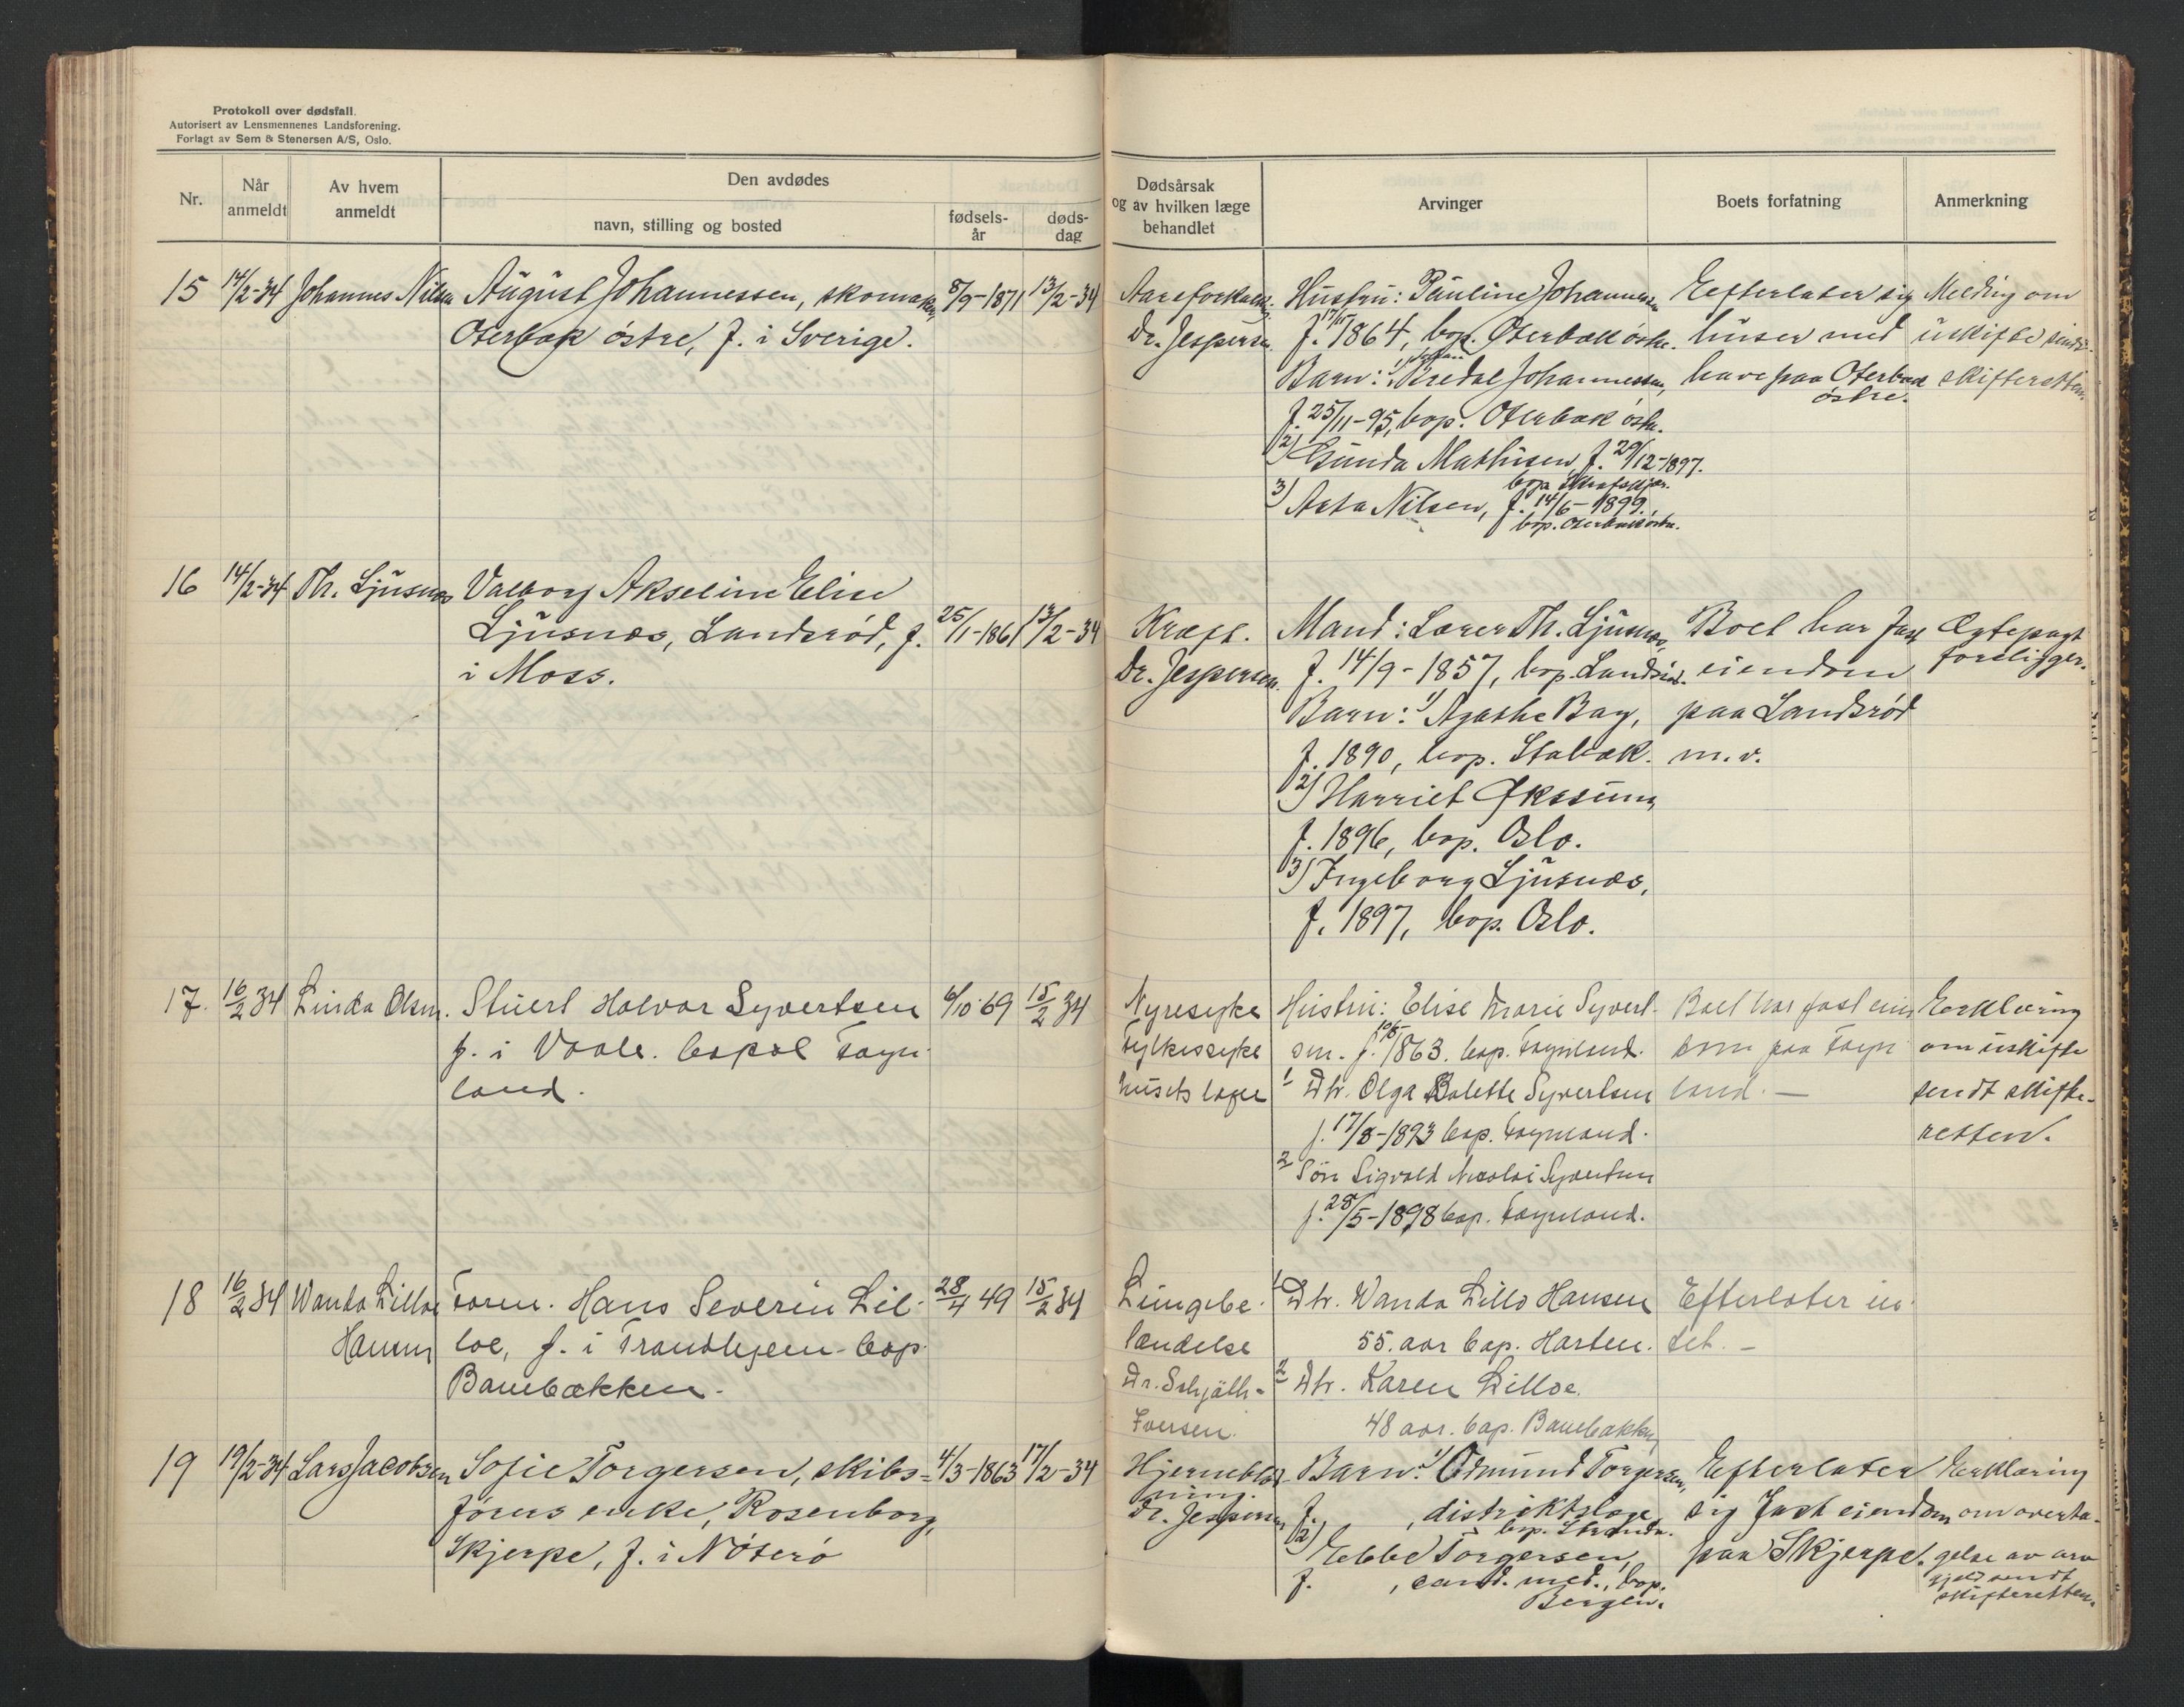 Protokoll over dødsfall.
Autorisert av Lensmennenes Landsforening.
Forlagt av Sem & Stenersen A/S, Oslo.
Nr.
Når anmeldt
Av hvem anmeldt
Den avdødes
navn, stilling og bosted
fødsels-år
døds-dag
Dødsårsak og av hvilken læge behandlet
Arvinger
Boets forfatning
Anmerkning
15 14/2-34 Johannes Nilsen August Johannessen, skomaker, 8/9-1871 13/2-34
Oterbæk østre, f. i Sverige.
Aareforkalk.
Dr. Jespersen.
Hustru: Pauline Johannessen
f. 1864, bop. Oterbæk østre.
Barn: 1) Johannessen,
f. 25/11-95, bop. Oterbæk østre.
2) Gunda Mathisen, f. 29/12-1897.
bop.
3) Asta Nilsen, f. 14/6-1899.
bop. Oterbæk østre.
Eefterlater sig
huser med
have paa Oterbæk
østre.
Melding om
uskifte sendt
skifteretten.
16 14/2-34 Th. Ljusnæs Valborg Akseline Elise
Ljusnæs, Landsrød, f. 25/1-1861 13/2-34
i Moss.
Kræft.
Dr. Jespersen.
Mand: Lærer Th. Ljusnæs,
f. 14/9-1857, bop. Landsrød.
Barn: 1) Agathe Bay,
f. 1890, bop. Stabæk.
2) Harriet
f. 1896, bop. Oslo.
3) Ingeborg Ljusnæs,
f. 1897, bop. Oslo.
Boet har fast
eiendom
paa Landsrød
m.v.
Ægtepagt
foreligger.
17. 16/2 34 Linda Olsen. Stuert Halvor Syvertsen 6/10 69 15/2 34
f. i Vaale. bopæl Fagn-
land.
Nyresyke
Fylkessyke
husets læge
Hustru: Elise Marie Syvert-
sen. f. 1863. bop. Fagnland.
1 Dtr. Olga Bolette Syvertsen
f. 17/8-1893 bop. Fagnland.
2 Søn Sigvald Nicolai Syvertsen
f. 28/5-1898 bop. Fagnland.
Boet har fast eien
dom paa Fagn
land. —
Erklæring
om uskifte
sendt skifte-
retten.
18 16/2 34 Wanda Lilloe Hansen
Hans Severin Lil- 28/4 49 15/2 34
loe, f. i Trondhjem bop.
Banebakken.
Lungebe-
tændelse
Dr. Schjøth-
Iversen.
1 Dtr. Wanda Lillo Hansen
55. aar bop. Horten.
2 Dtr. Karen Lilloe.
48 aar. bop. Banebakken
Efterlater in-
tet. —
19 19/2-34 Lars Jacobsen Sofie Torgersen, skibs- 4/3-1863 17/2-34
førers enke, Rosenborg,
Skjerpe, f. i Nøterø
Hjerneblød-
ning.
Dr. Jespersen
Barn: 1) Odmund Torgersen,
f. , distriktslæge,
bop.
2) Ebbe Torgersen,
f. , cand. med., bop.
Bergen.
Efterlater
sig fast eiendom
paa Skjerpe.
Erklæring
om overta-
gelse av arv
gjeld sendt
skifteretten.